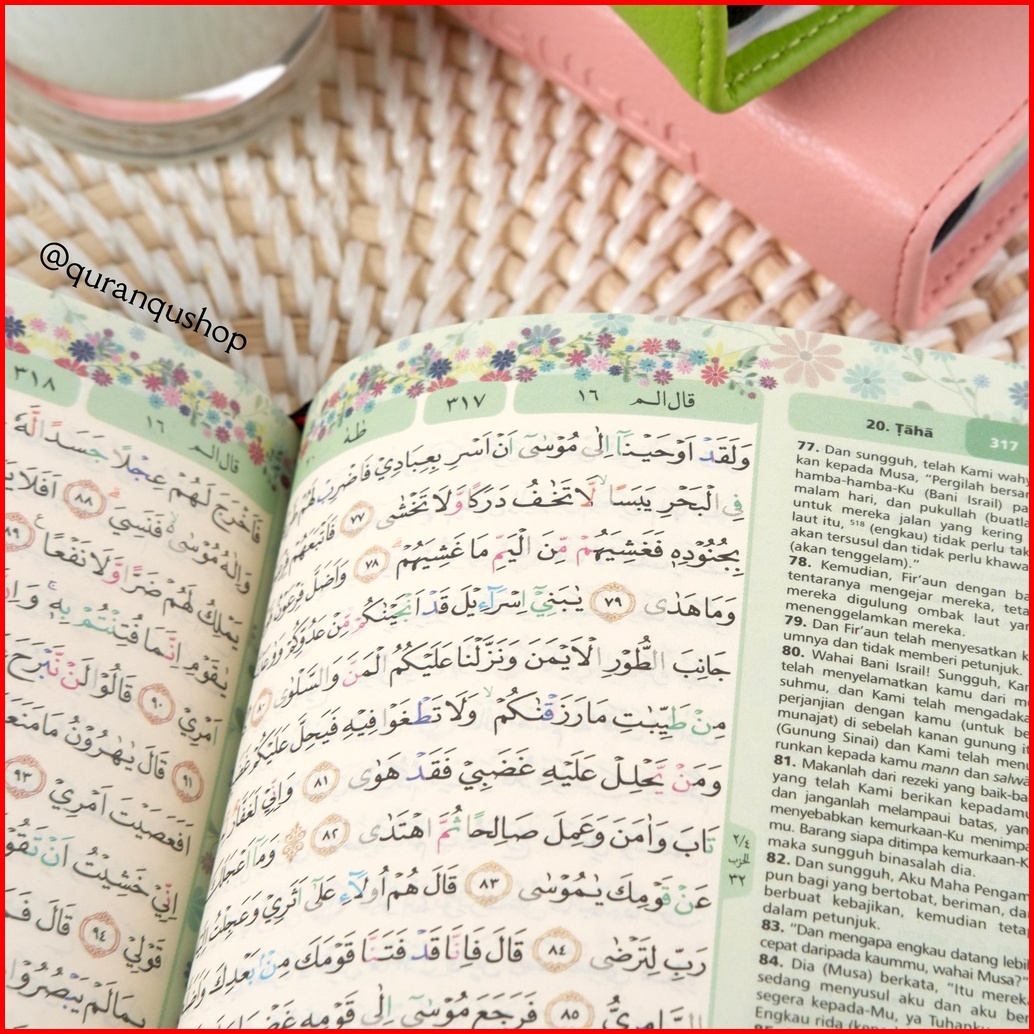 @quranqushop
٣١٧
قال الم ١٦
طٰهٰ
وَلَقَدْ اَوْحَيْنَآ اِلٰى مُوْسٰٓى اَنْ اَسْرِ بِعِبَادِيْ فَاضْرِبْ لَهُمْ
فِى الْبَحْرِ يَبَسًاۙ لَّا تَخٰفُ دَرَكًا وَّلَا تَخْشٰى ٧٧ فَاَتْبَعَهُمْ
بِجُنُوْدِهٖ فَغَشِيَهُمْ مِّنَ الْيَمِّ مَا غَشِيَهُمْ ۗ ٧٨ وَاَضَلَّ فِرْعَوْنُ
وَمَا هَدٰى ٧٩ يٰبَنِيْٓ اِسْرَاۤءِيْلَ قَدْ اَنْجَيْنٰكُمْ مِّنْ عَدُوِّكُمْ
جَانِبَ الطُّوْرِ الْاَيْمَنَ وَنَزَّلْنَا عَلَيْكُمُ الْمَنَّ وَالسَّلْوٰى ٨٠
مِنْ طَيِّبٰتِ مَا رَزَقْنٰكُمْۙ وَلَا تَطْغَوْا فِيْهِ فَيَحِلَّ عَلَيْكُمْ
وَمَنْ يَّحْلِلْ عَلَيْهِ غَضَبِيْ فَقَدْ هَوٰى ٨١ وَاِنِّيْ لَغَفَّارٌ
تَابَ وَاٰمَنَ وَعَمِلَ صَالِحًا ثُمَّ اهْتَدٰى ٨٢ ۞ وَمَآ اَعْجَلَكَ
عَنْ قَوْمِكَ يٰمُوْسٰى ٨٣ قَالَ هُمْ اُولَاۤءِ عَلٰٓى اَثَرِيْ وَعَجِلْتُ
رَبِّ لِتَرْضٰى ٨٤ قَالَ فَاِنَّا قَدْ فَتَنَّا قَوْمَكَ مِنْۢ بَعْدِكَ
السَّامِرِيُّ ٨٥ فَرَجَعَ مُوْسٰٓى اِلٰى قَوْمِهٖ
٢/٤
الحزب
٣٢
٣١٨
قال الم ١٦
فَاَخْرَجَ لَهُمْ عِجْلًا جَسَدًا لَّهٗ
وَاِلٰهُ مُوْسٰى ەۙ فَنَسِيَ ۗ ٨٨ اَفَلَا
يَمْلِكُ لَهُمْ ضَرًّا وَّلَا نَفْعًا ٨٩
يٰقَوْمِ اِنَّمَا فُتِنْتُمْ بِهٖۚ
اَمْرِيْ ٩٠ قَالُوْا لَنْ نَّبْرَحَ
٩١ قَالَ يٰهٰرُوْنُ مَا مَنَعَكَ
اَفَعَصَيْتَ اَمْرِيْ ٩٣
اِنِّيْ خَشِيْتُ اَنْ تَقُوْلَ
قَوْلِيْ ٩٤ قَالَ
بِمَا لَمْ يَبْصُرُوْا
20. Ṭāhā 317
77. Dan sungguh, telah Kami wahy
kan kepada Musa, “Pergilah bersam
hamba-hamba-Ku (Bani Israil) pa
malam hari, dan pukullah (buatla
untuk mereka jalan yang kering
laut itu, 518 (engkau) tidak perlu tak
akan tersusul dan tidak perlu khawa
(akan tenggelam).”
78. Kemudian, Fir‘aun dengan ba
tentaranya mengejar mereka, teta
mereka digulung ombak laut yan
menenggelamkan mereka.
79. Dan Fir‘aun telah menyesatkan k
umnya dan tidak memberi petunjuk.
80. Wahai Bani Israil! Sungguh, Kam
telah menyelamatkan kamu dari mu
suhmu, dan Kami telah mengadaka
perjanjian dengan kamu (untuk be
munajat) di sebelah kanan gunung it
(Gunung Sinai) dan Kami telah menu
runkan kepada kamu mann dan salwa
81. Makanlah dari rezeki yang baik-ba
yang telah Kami berikan kepadamu
dan janganlah melampaui batas, yan
menyebabkan kemurkaan-Ku menimpa
mu. Barang siapa ditimpa kemurkaan-K
maka sungguh binasalah dia.
82. Dan sungguh, Aku Maha Pengam
pun bagi yang bertobat, beriman, da
berbuat kebajikan, kemudian teta
dalam petunjuk.
83. “Dan mengapa engkau datang lebih
cepat daripada kaummu, wahai Musa?”
84. Dia (Musa) berkata, “Itu mereka
sedang menyusul aku dan aku be
segera kepada-Mu, ya Tuhanku
Engkau rida